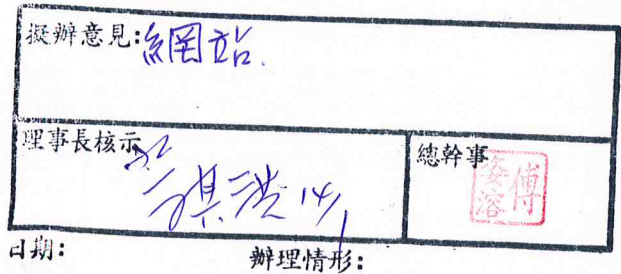 擬辦意見:網站.
理事長核示
總幹事
傅
姿溶
日期: 辦理情形: